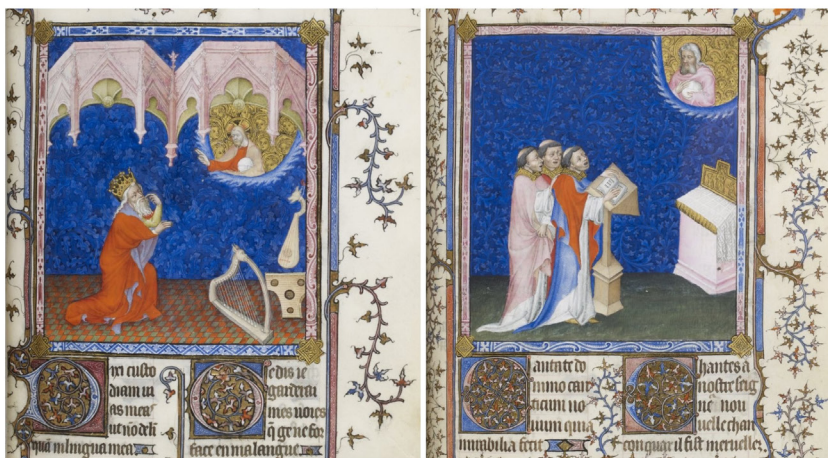 Dixi custo
diam ui
as meas
ut nō deli
quā in lingua mea
Ge dis ie
garderai
mes uoies
q̄ ge ne for
face en ma langue
Cantate do
mino can
ticum no
uum quia
mirabilia fecit
Chantes a
nostre seig
nou
uelle chan
con quar il fist merueilles